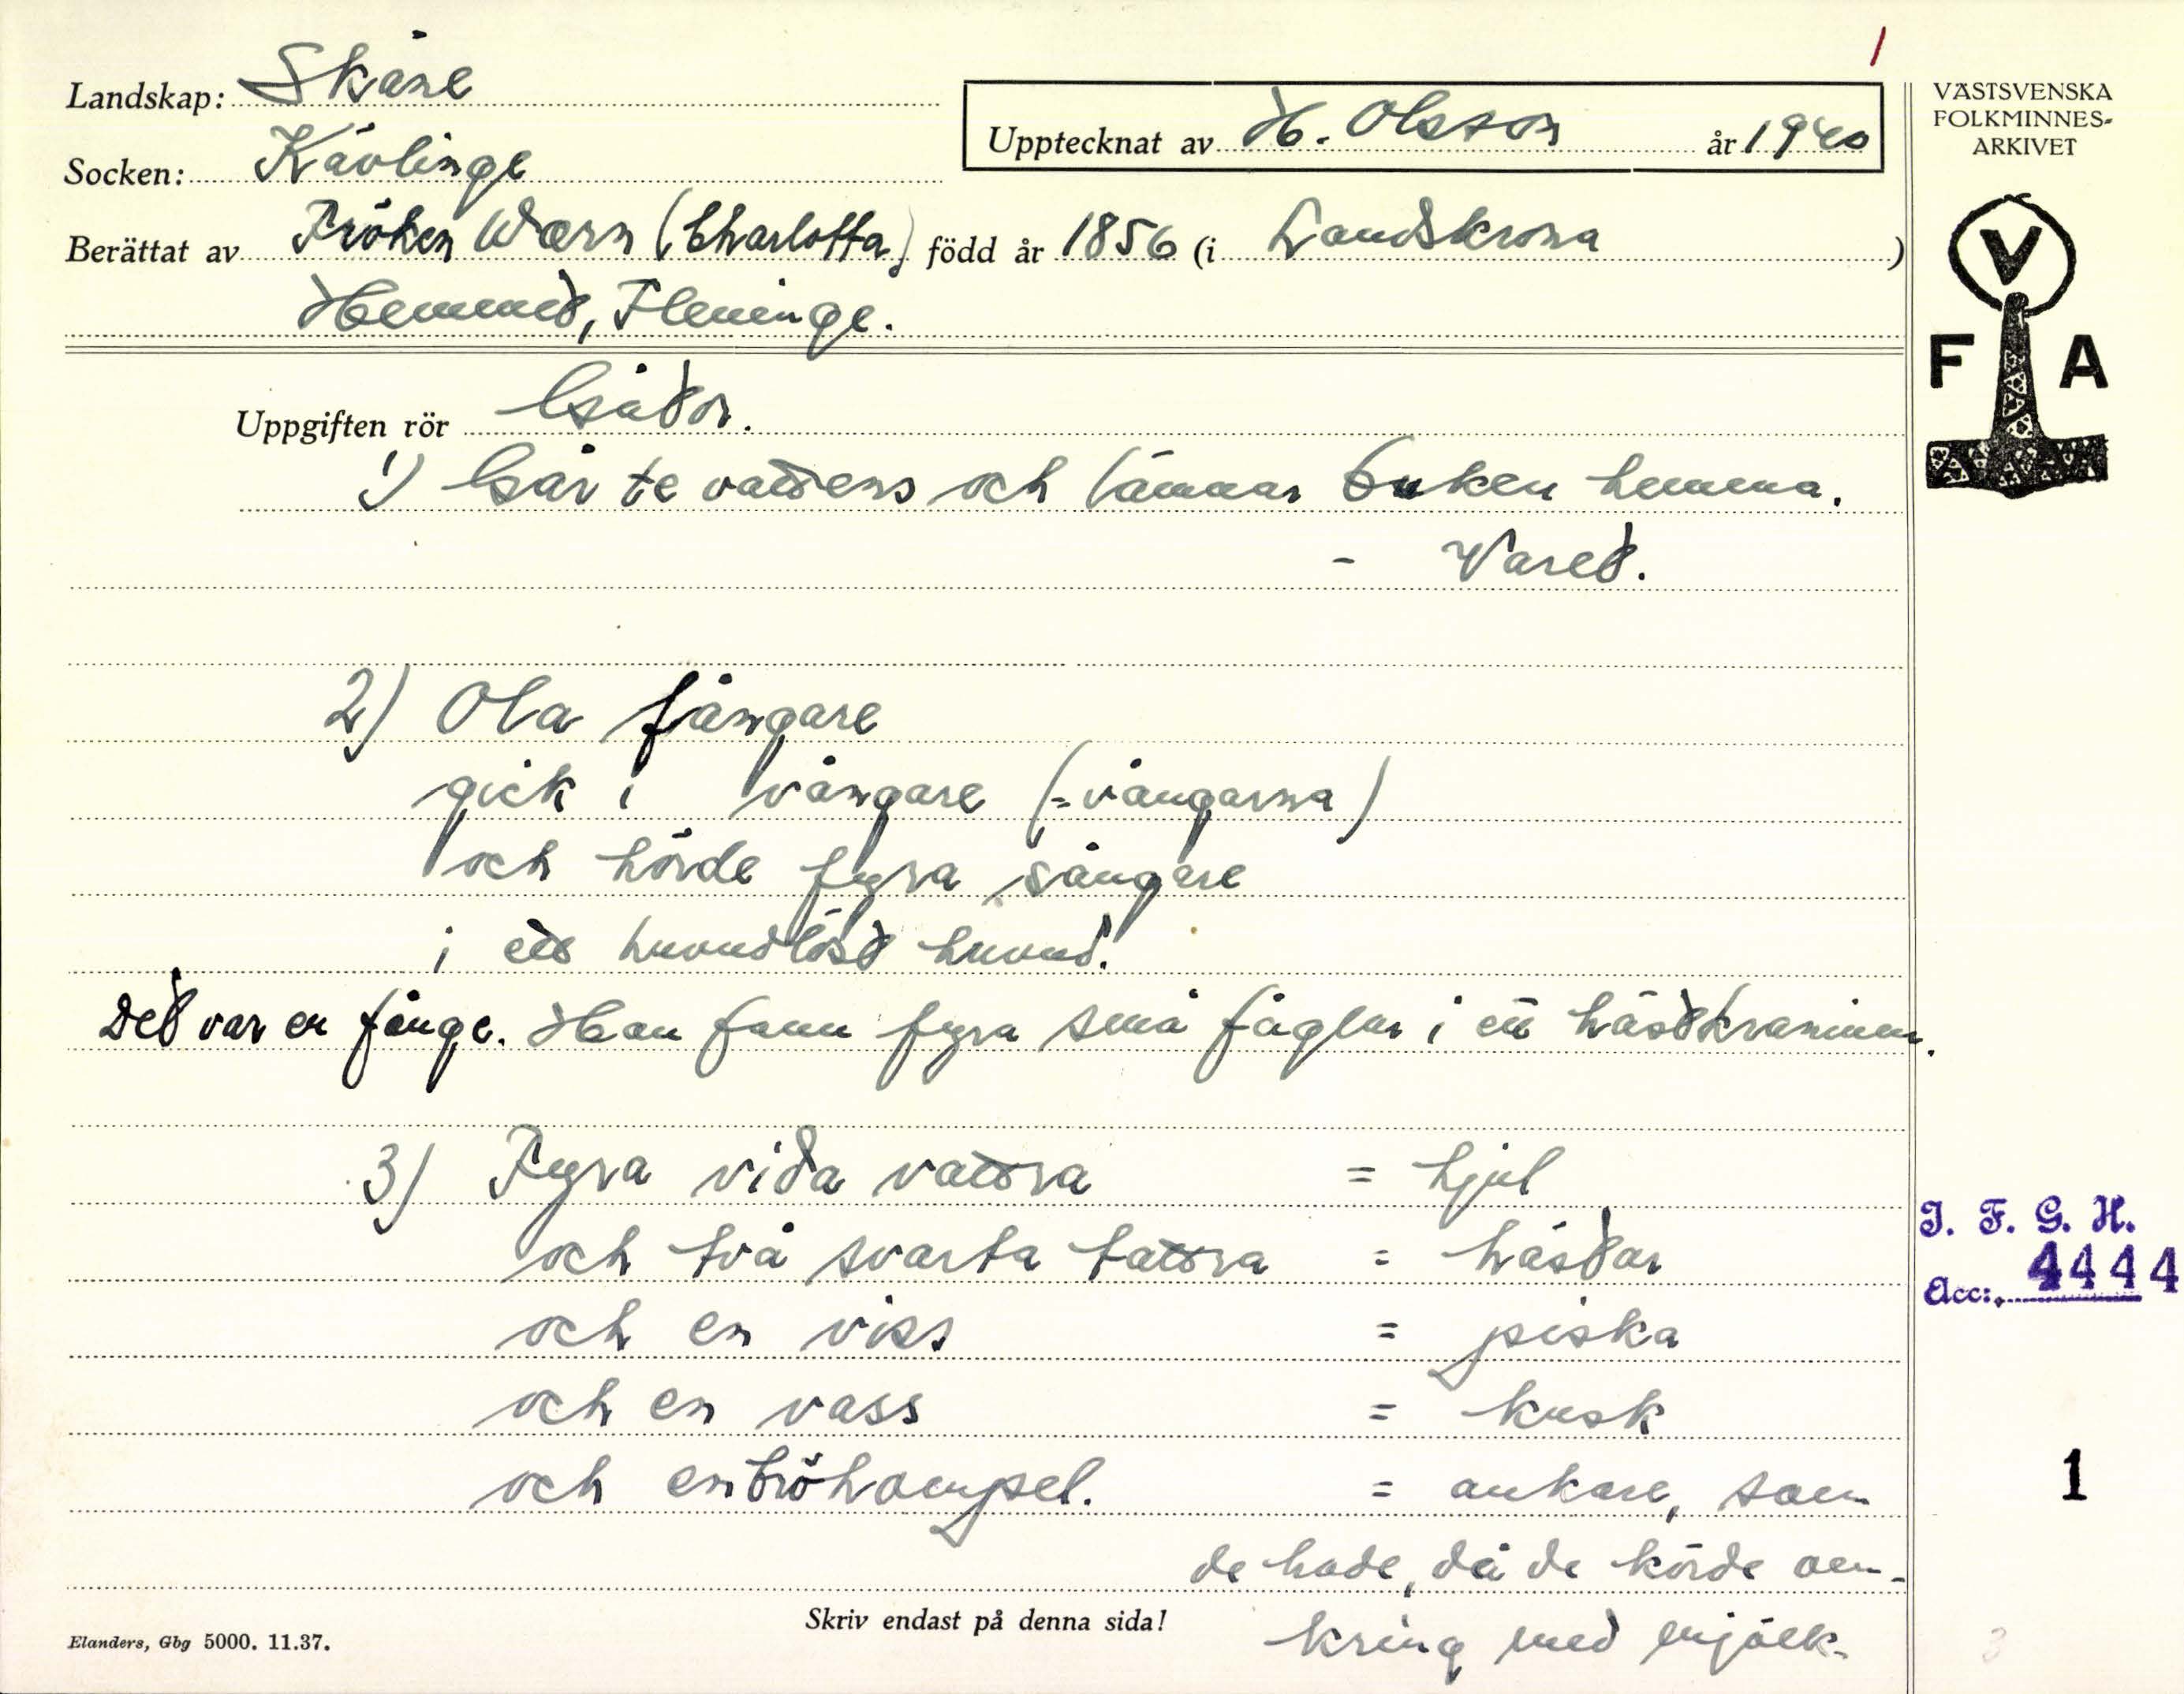 1
Landskap: Skåne
Upptecknat av H. Olsson år 1940
VÄSTSVENSKA
FOLKMINNES-
ARKIVET
Socken: Kävlinge
Berättat av Fröken Wærn (Charlotta) född år 1856 (i Landskrona)
Hemmet, Fleninge.
V
F A
Uppgiften rör Gåtor.
1) Går te vattens och lämnar buken hemma.
- Varet.
2) Ola fångare
gick i vångare (=vångarna)
och hörde fyra sångare
i ett huvudlöst huvud.
Det var en fånge. Han fann fyra små fåglar i ett hästkranium.
3) Fyra vida vattra = hjul
och två svarta tattra = hästar
och en viss = piska
och en vass = kusk
och en bröhampel. = ankare, som
de hade, då de körde om-
kring med mjölk.
I. F. G. H.
Acc: 4444
1
Skriv endast på denna sida!
Elanders, Gbg 5000. 11.37.
3